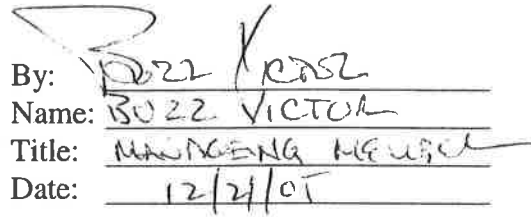 By: Buzz Victor
Name: BUZZ VICTOR
Title: MANAGING MEMBER
Date: 12/21/05